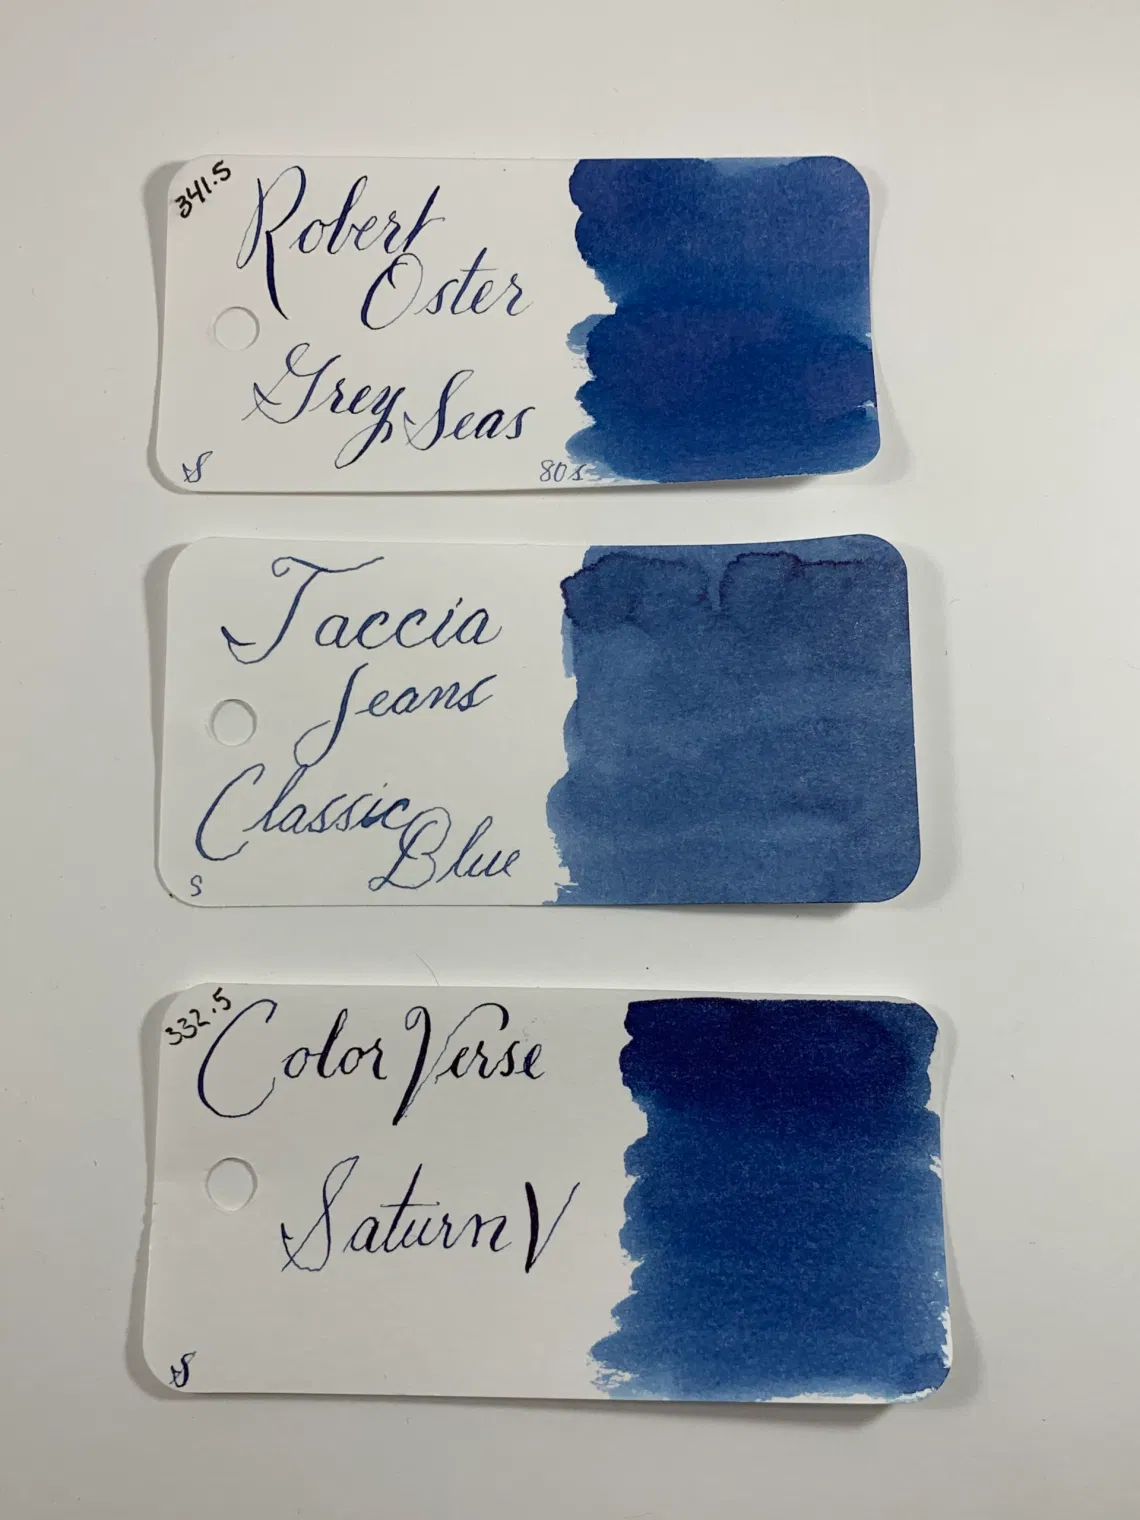 341.5
Robert
Oster
Grey Seas
S
80s
Taccia
Jeans
Classic
Blue
S
332.5
Color Verse
Saturn V
S